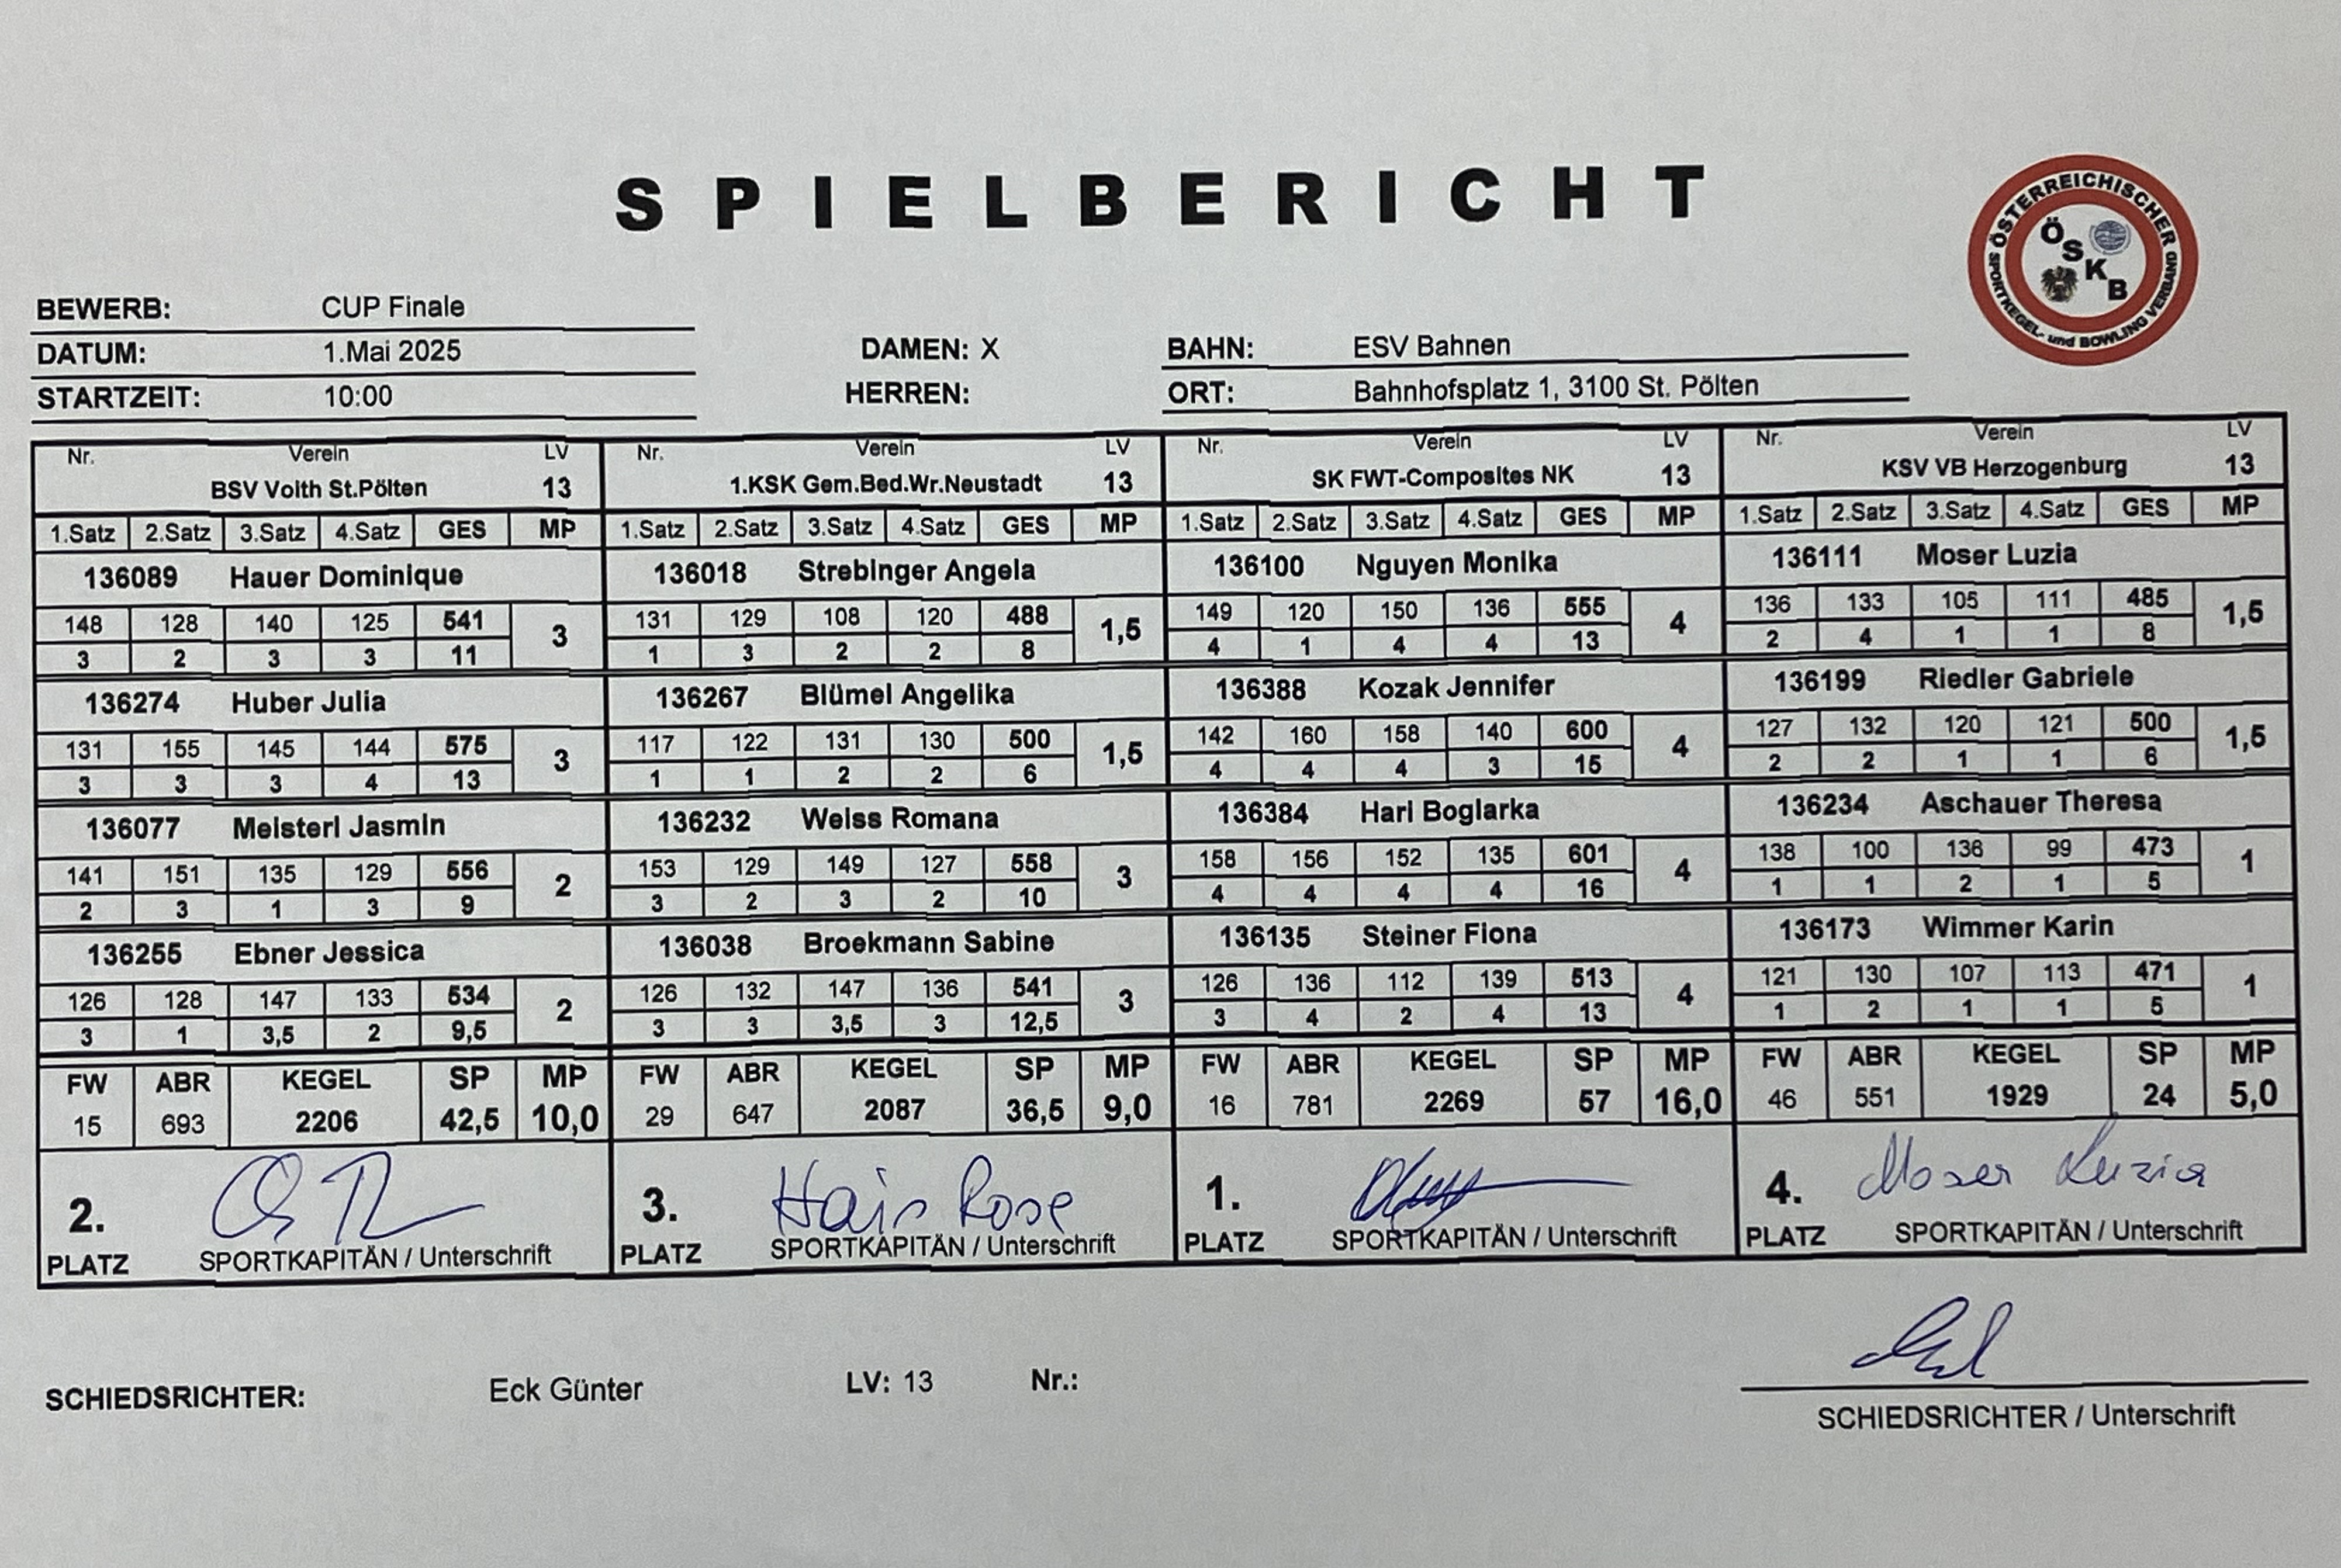 SPIELBERICHT
ÖSTERREICHISCHER SPORTKEGEL- und BOWLING VERBAND
ÖSKB
BEWERB: CUP Finale
DATUM: 1.Mai 2025 DAMEN: X BAHN: ESV Bahnen
STARTZEIT: 10:00 HERREN: ORT: Bahnhofsplatz 1, 3100 St. Pölten
Nr. Verein LV Nr. Verein LV Nr. Verein LV Nr. Verein LV
BSV Voith St.Pölten 13 1.KSK Gem.Bed.Wr.Neustadt 13 SK FWT-Composites NK 13 KSV VB Herzogenburg 13
1.Satz 2.Satz 3.Satz 4.Satz GES MP 1.Satz 2.Satz 3.Satz 4.Satz GES MP 1.Satz 2.Satz 3.Satz 4.Satz GES MP 1.Satz 2.Satz 3.Satz 4.Satz GES MP
136089 Hauer Dominique 136018 Strebinger Angela 136100 Nguyen Monika 136111 Moser Luzia
148 128 140 125 541 3 131 129 108 120 488 1,5 149 120 150 136 555 4 136 133 105 111 485 1,5
3 2 3 3 11 1 3 2 2 8 4 1 4 4 13 2 4 1 1 8
136274 Huber Julia 136267 Blümel Angelika 136388 Kozak Jennifer 136199 Riedler Gabriele
131 155 145 144 575 3 117 122 131 130 500 1,5 142 160 158 140 600 4 127 132 120 121 500 1,5
3 3 3 4 13 1 1 2 2 6 4 4 4 3 15 2 2 1 1 6
136077 Meisterl Jasmin 136232 Weiss Romana 136384 Harl Boglarka 136234 Aschauer Theresa
141 151 135 129 556 2 153 129 149 127 558 3 158 156 152 135 601 4 138 100 136 99 473 1
2 3 1 3 9 3 2 3 2 10 4 4 4 4 16 1 1 2 1 5
136255 Ebner Jessica 136038 Broekmann Sabine 136135 Steiner Fiona 136173 Wimmer Karin
126 128 147 133 534 2 126 132 147 136 541 3 126 136 112 139 513 4 121 130 107 113 471 1
3 1 3,5 2 9,5 3 3 3,5 3 12,5 3 4 2 4 13 1 2 1 1 5
FW ABR KEGEL SP MP FW ABR KEGEL SP MP FW ABR KEGEL SP MP FW ABR KEGEL SP MP
15 693 2206 42,5 10,0 29 647 2087 36,5 9,0 16 781 2269 57 16,0 46 551 1929 24 5,0
2. 3. Hais Rose 1. 4. Moser Luzia
PLATZ SPORTKAPITÄN / Unterschrift PLATZ SPORTKAPITÄN / Unterschrift PLATZ SPORTKAPITÄN / Unterschrift PLATZ SPORTKAPITÄN / Unterschrift
SCHIEDSRICHTER: Eck Günter LV: 13 Nr.:
SCHIEDSRICHTER / Unterschrift